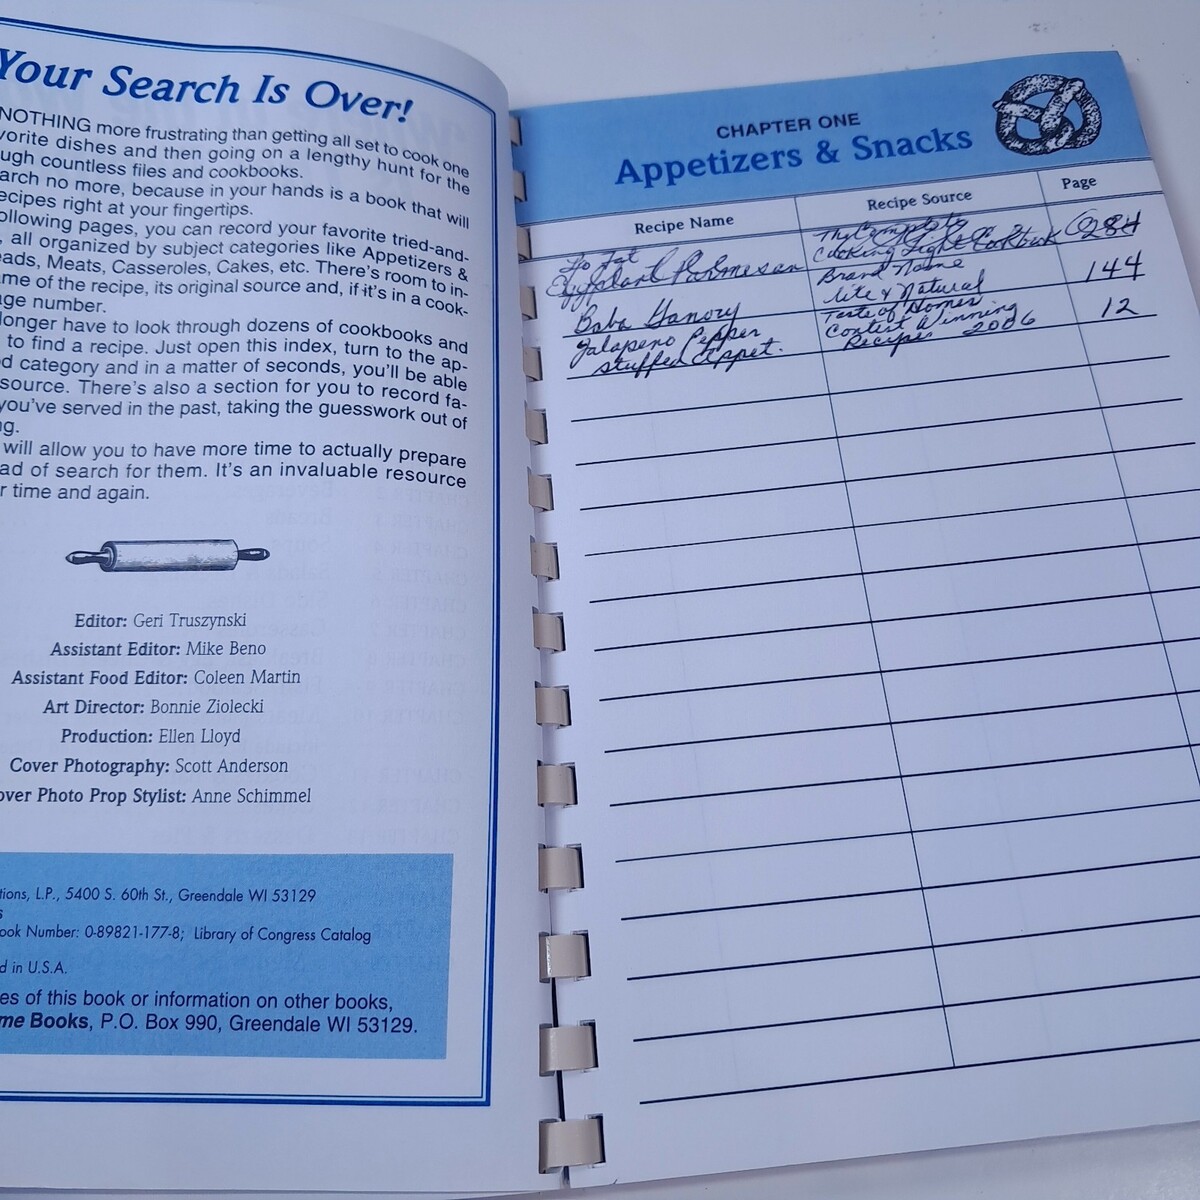 Your Search Is Over!
NOTHING more frustrating than getting all set to cook one
vorite dishes and then going on a lengthy hunt for the
ugh countless files and cookbooks.
arch no more, because in your hands is a book that will
ecipes right at your fingertips.
ollowing pages, you can record your favorite tried-and-
, all organized by subject categories like Appetizers &
eads, Meats, Casseroles, Cakes, etc. There's room to in-
me of the recipe, its original source and, if it's in a cook-
ge number.
longer have to look through dozens of cookbooks and
to find a recipe. Just open this index, turn to the ap-
d category and in a matter of seconds, you'll be able
source. There's also a section for you to record fa-
you've served in the past, taking the guesswork out of
ng.
will allow you to have more time to actually prepare
ad of search for them. It's an invaluable resource
r time and again.
Editor: Geri Truszynski
Assistant Editor: Mike Beno
Assistant Food Editor: Coleen Martin
Art Director: Bonnie Ziolecki
Production: Ellen Lloyd
Cover Photography: Scott Anderson
over Photo Prop Stylist: Anne Schimmel
tions, L.P., 5400 S. 60th St., Greendale WI 53129
s
ook Number: 0-89821-177-8; Library of Congress Catalog
d in U.S.A.
es of this book or information on other books,
me Books, P.O. Box 990, Greendale WI 53129.
CHAPTER ONE
Appetizers & Snacks
Recipe Name Recipe Source Page
Lo Fat The Complete
Eggplant Parmesan Cooking Light Cookbook 284
Baba Ganouj Brand Name
Lite & Natural 144
Jalapeno Pepper Taste of Homes
Stuffed Appet. Contest Winning 12
Recipes 2006